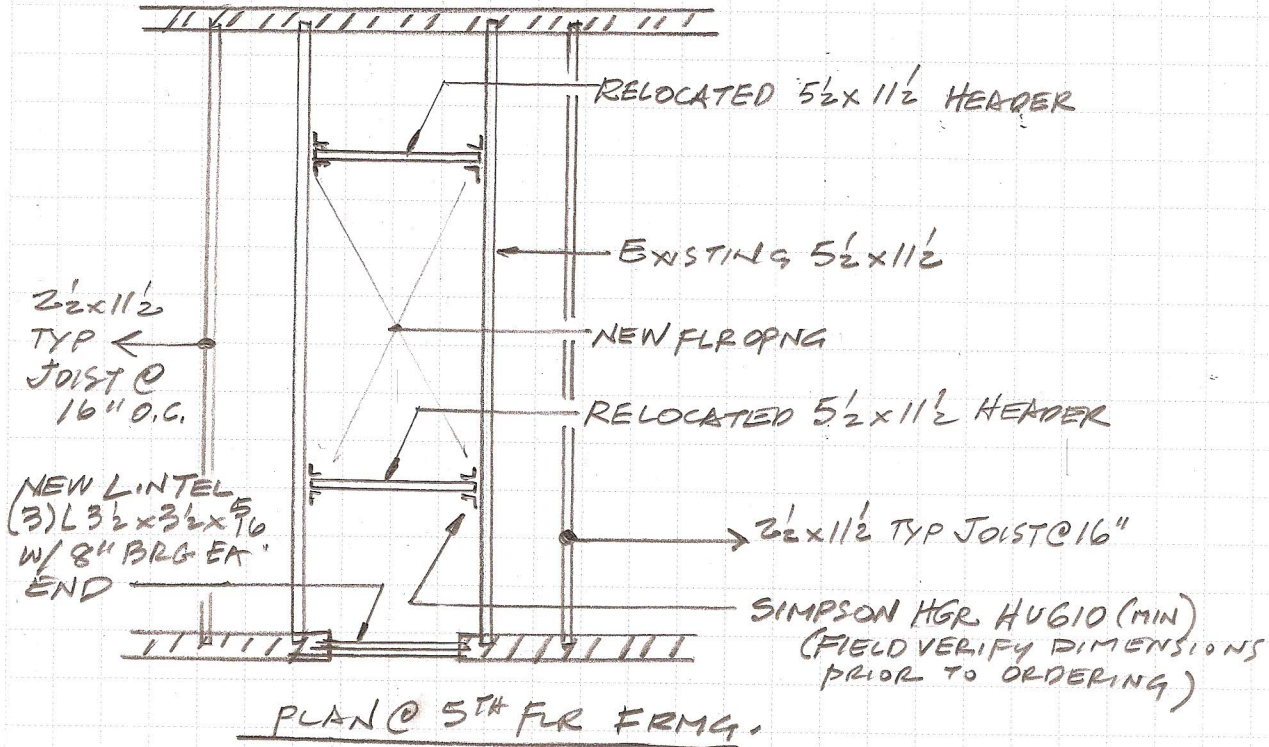 RELOCATED 5½ x 11½ HEADER
EXISTING 5½ x 11½
2½ x 11½
TYP
JOIST @
16" O.C.
NEW FLR OPNG
RELOCATED 5½ x 11½ HEADER
NEW LINTEL
(3) L 3½ x 3½ x 5/16
W/ 8" BRG EA
END
2½ x 11½ TYP JOIST @ 16"
SIMPSON HGR HU610 (MIN)
(FIELD VERIFY DIMENSIONS
PRIOR TO ORDERING)
PLAN @ 5TH FLR FRMG.